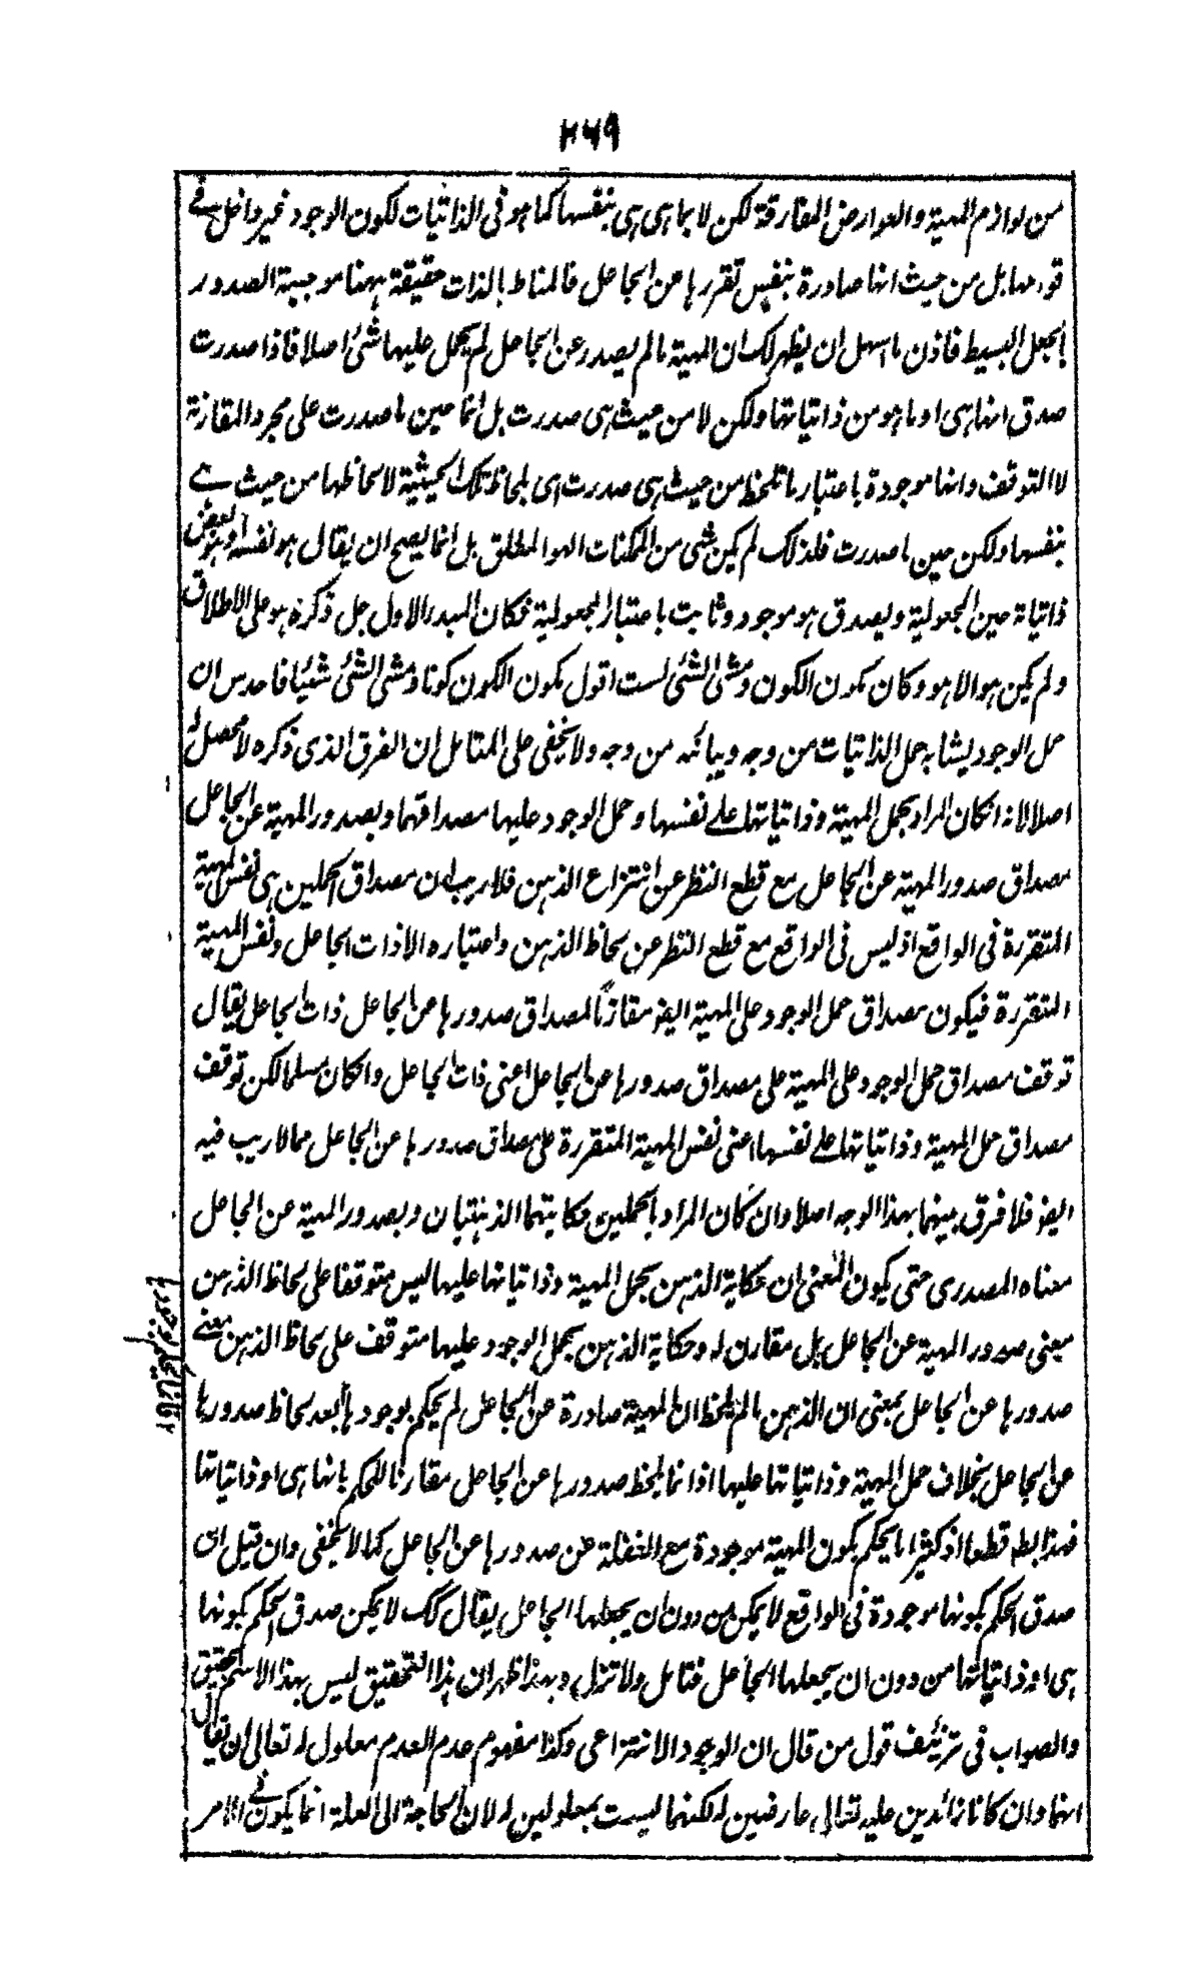 ٢٦٩
من لوازم المهية والعوارض المفارقة لكن لا بما هى هى بنفسها كما هو فى الذاتيات لكون الوجود غير داخل في
قوامها بل من حيث انها صادرة بنفس تقررها عن الجاعل فالمناط بالذات حقيقة ههنا موجبية الصدور
بالجعل البسيط فاذن ما اسهل ان يظهر لك ان المهية ما لم يصدر عن الجاعل لم يحمل عليها شئ اصلا فاذا صدرت
صدق انها هى او ما هو من ذاتياتها ولكن لا من حيث هى صدرت بل انما حين ما صدرت على مجرد المقارنة
لا التوقف وانها موجودة باعتبار ما تلحظ من حيث هى صدرت اى بلحاظ تلك الحيثية لا لحاظها من حيث هے
بنفسها ولكن حين ما صدرت فلذلك لم يكن شى من الممكنات الهو المطلق بل انما يصح ان يقال هو نفسه او هو بعض
ذاتياته حين المجعولية ويصدق هو موجود وثابت باعتبار المجعولية فكان المبدء الاول جل ذكره هو على الاطلاق
ولم يكن هو الا هو وكان مكون الكون ومشئ الشئ لست اقول مكون الكون كونا ومشئ الشئ شيئا فاحدس ان
حمل الوجود يشابه حمل الذاتيات من وجه ويبائنه من وجه ولا يخفى على المتامل ان الفرق الذى ذكره لا محصل له
اصلا لانه انكان المراد بحمل المهية وذاتياتها علے نفسها وحمل الوجود عليها مصداقهما وبصدور المهية عن الجاعل
مصداق صدور المهية عن الجاعل مع قطع النظر عن انتزاع الذهن فلا ريب ان مصداق الحملين هى نفس المهية
المتقررة فى الواقع اذ ليس فى الواقع مع قطع النظر عن لحاظ الذهن واعتباره الا ذات الجاعل ونفس المهية
المتقررة فيكون مصداق حمل الوجود على المهية ايضا مقارنا لمصداق صدورها عن الجاعل ذات الجاعل يقال
توقف مصداق حمل الوجود على المهية على مصداق صدورها عن الجاعل اعنى ذات الجاعل وانكان مسلما لكن توقف
مصداق حمل المهية وذاتياتها علے نفسها اعنى نفس المهية المتقررة على مصداق صدورها عن الجاعل مما لا ريب فيه
ايضا فلا فرق بينهما بهذا الوجه اصلا وان كان المراد بالحملين حكايتهما الذهنيتان وبصدور المهية عن الجاعل
معناه المصدرى حتى يكون المعنى ان حكاية الذهن بحمل المهية وذاتياتها عليها ليس متوقفا على لحاظ الذهن
معنى صدور المهية عن الجاعل بل مقارن له وحكاية الذهن بحمل الوجود عليها متوقف على لحاظ الذهن معنے
صدورها عن الجاعل بمعنى ان الذهن ما لم يلحظ ان المهية صادرة عن الجاعل لم يحكم بوجودها بعد لحاظ صدورها
عن الجاعل بخلاف حمل المهية وذاتياتها عليها اذ انما يلحظ صدورها عن الجاعل مقارنا للحكم بانها هى او ذاتياتها
فهذا بط قطعا اذ كثيرا ما يحكم بكون المهية موجودة مع الغفلة عن صدورها عن الجاعل كما لا يخفى وان قيل ان
صدق الحكم بكونها موجودة فى الواقع لا يمكن من دون ان يجعلها الجاعل يقال كك لا يمكن صدق الحكم بكونها
هى او ذاتياتها من دون ان يجعلها الجاعل فتامل ولا تزل وبهذا ظهر ان هذا التحقيق ليس بهذا الاسم بحقيق
والصواب فى تزئيف قول من قال ان الوجود الانتزاعى وكذا مفهوم عدم العدم معلول له تعالى ان يقال
انهما وان كانا زائدين عليه تعالى عارضين له لكنهما ليست بمعلولين له لان الحاجة الى العلة انما يكون في الامر